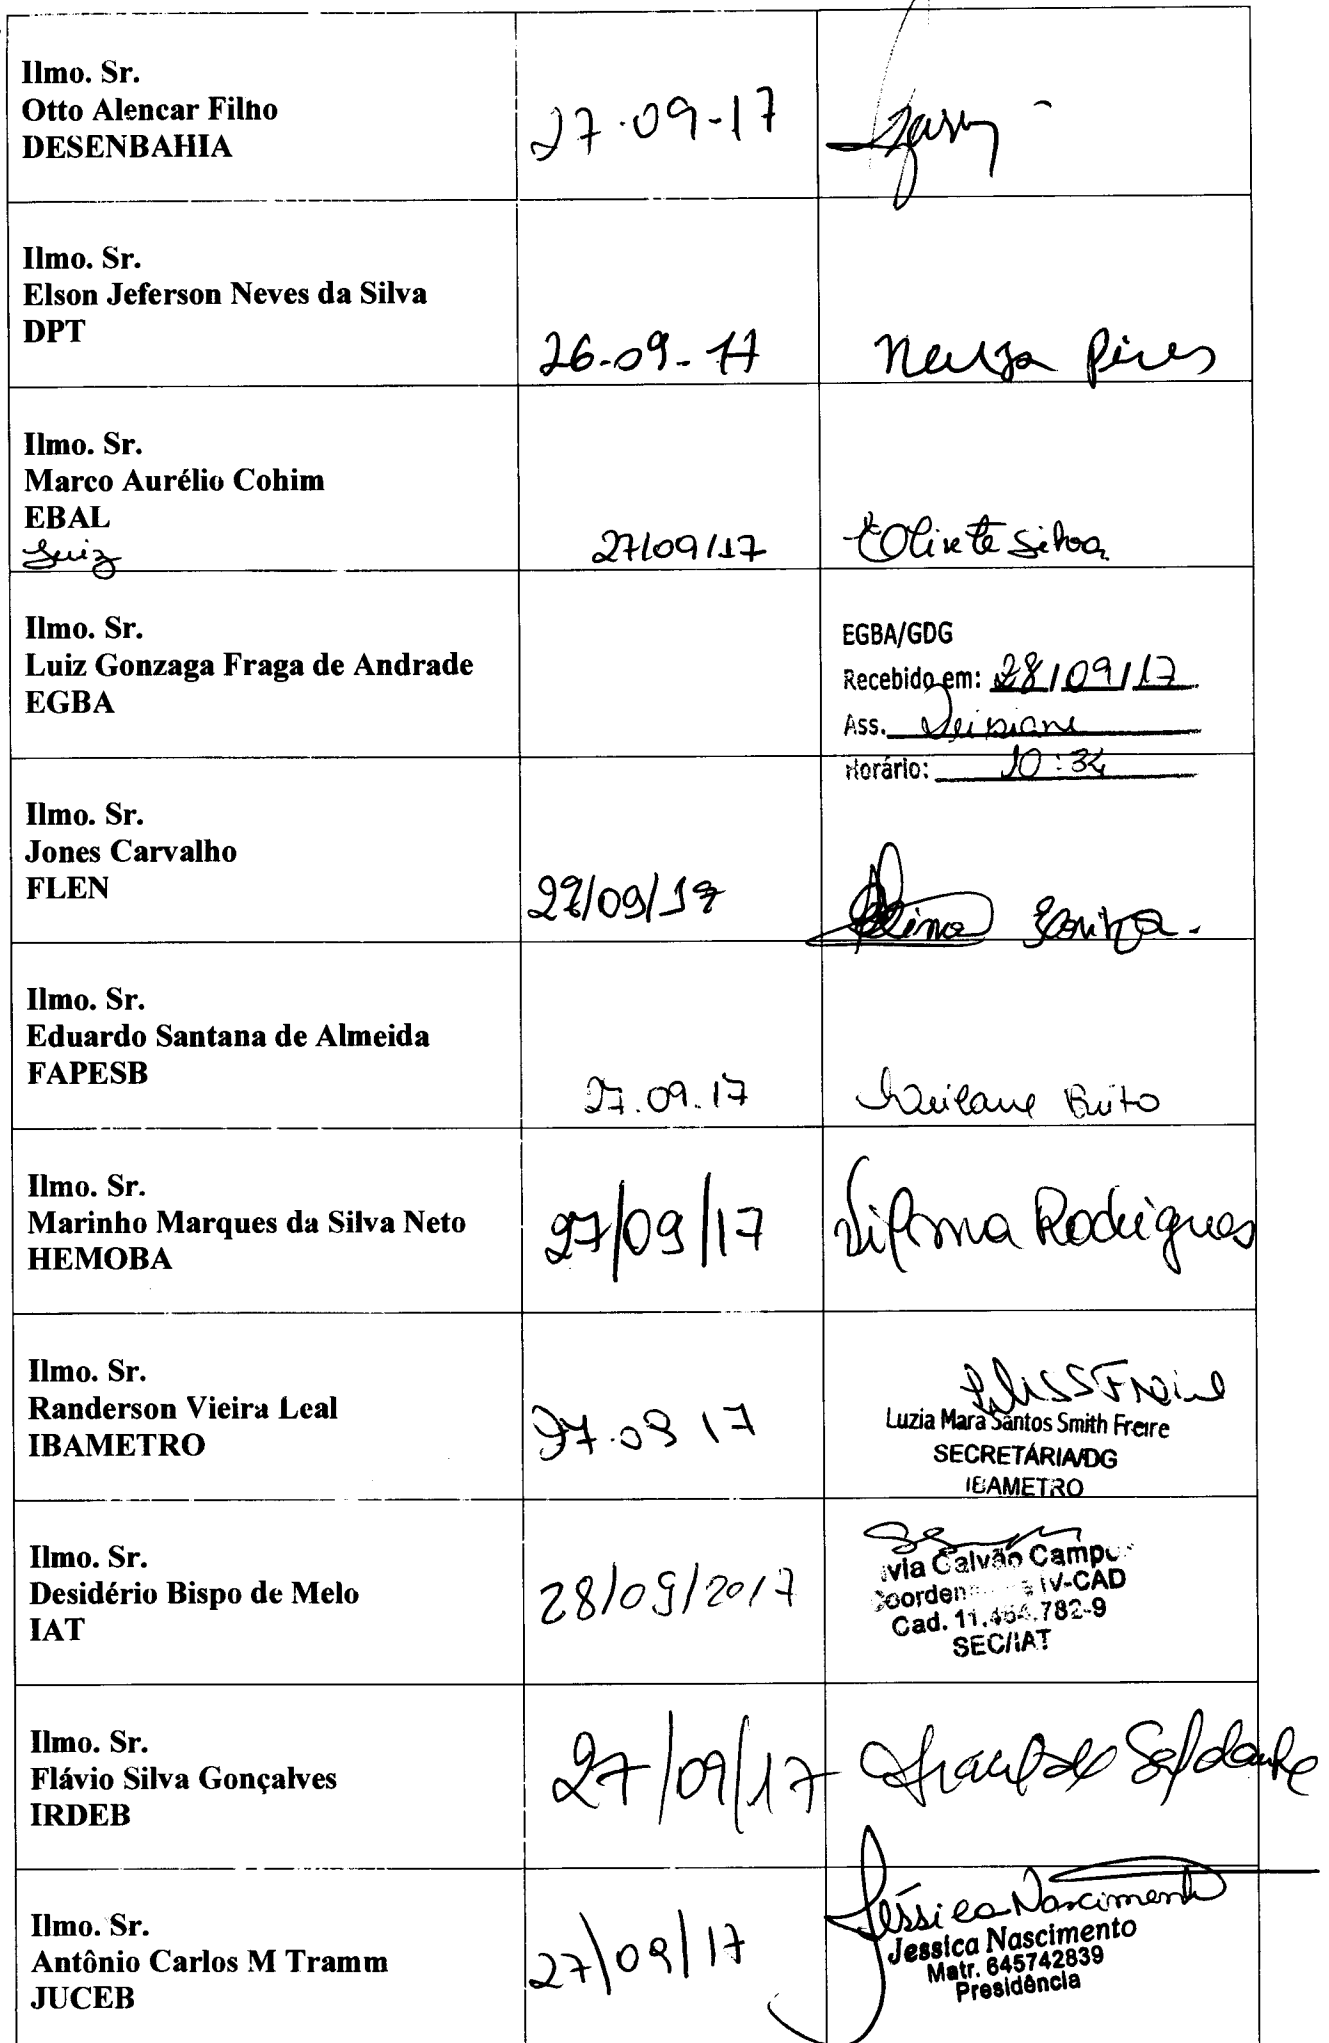 Ilmo. Sr.
Otto Alencar Filho
DESENBAHIA
27.09-17
Ilmo. Sr.
Elson Jeferson Neves da Silva
DPT
26-09-17
Neuza Pires
Ilmo. Sr.
Marco Aurélio Cohim
EBAL
Luiz
27/09/17
Olivete Silva
Ilmo. Sr.
Luiz Gonzaga Fraga de Andrade
EGBA
EGBA/GDG
Recebido em: 28/09/17
Ass. Deisiane
Horário: 10:34
Ilmo. Sr.
Jones Carvalho
FLEN
27/09/17
Souza.
Ilmo. Sr.
Eduardo Santana de Almeida
FAPESB
27.09.17
Brito
Ilmo. Sr.
Marinho Marques da Silva Neto
HEMOBA
27/09/17
Vilma Rodrigues
Ilmo. Sr.
Randerson Vieira Leal
IBAMETRO
27.09 17
Freire
Luzia Mara Santos Smith Freire
SECRETÁRIA/DG
IBAMETRO
Ilmo. Sr.
Desidério Bispo de Melo
IAT
28/09/2017
Galvão Campos
IV-CAD
Cad. 11.464.782-9
SEC/IAT
Ilmo. Sr.
Flávio Silva Gonçalves
IRDEB
27/09/17
Ilmo. Sr.
Antônio Carlos M Tramm
JUCEB
27/09/17
Jéssica Nascimento
Jessica Nascimento
Matr. 645742839
Presidência